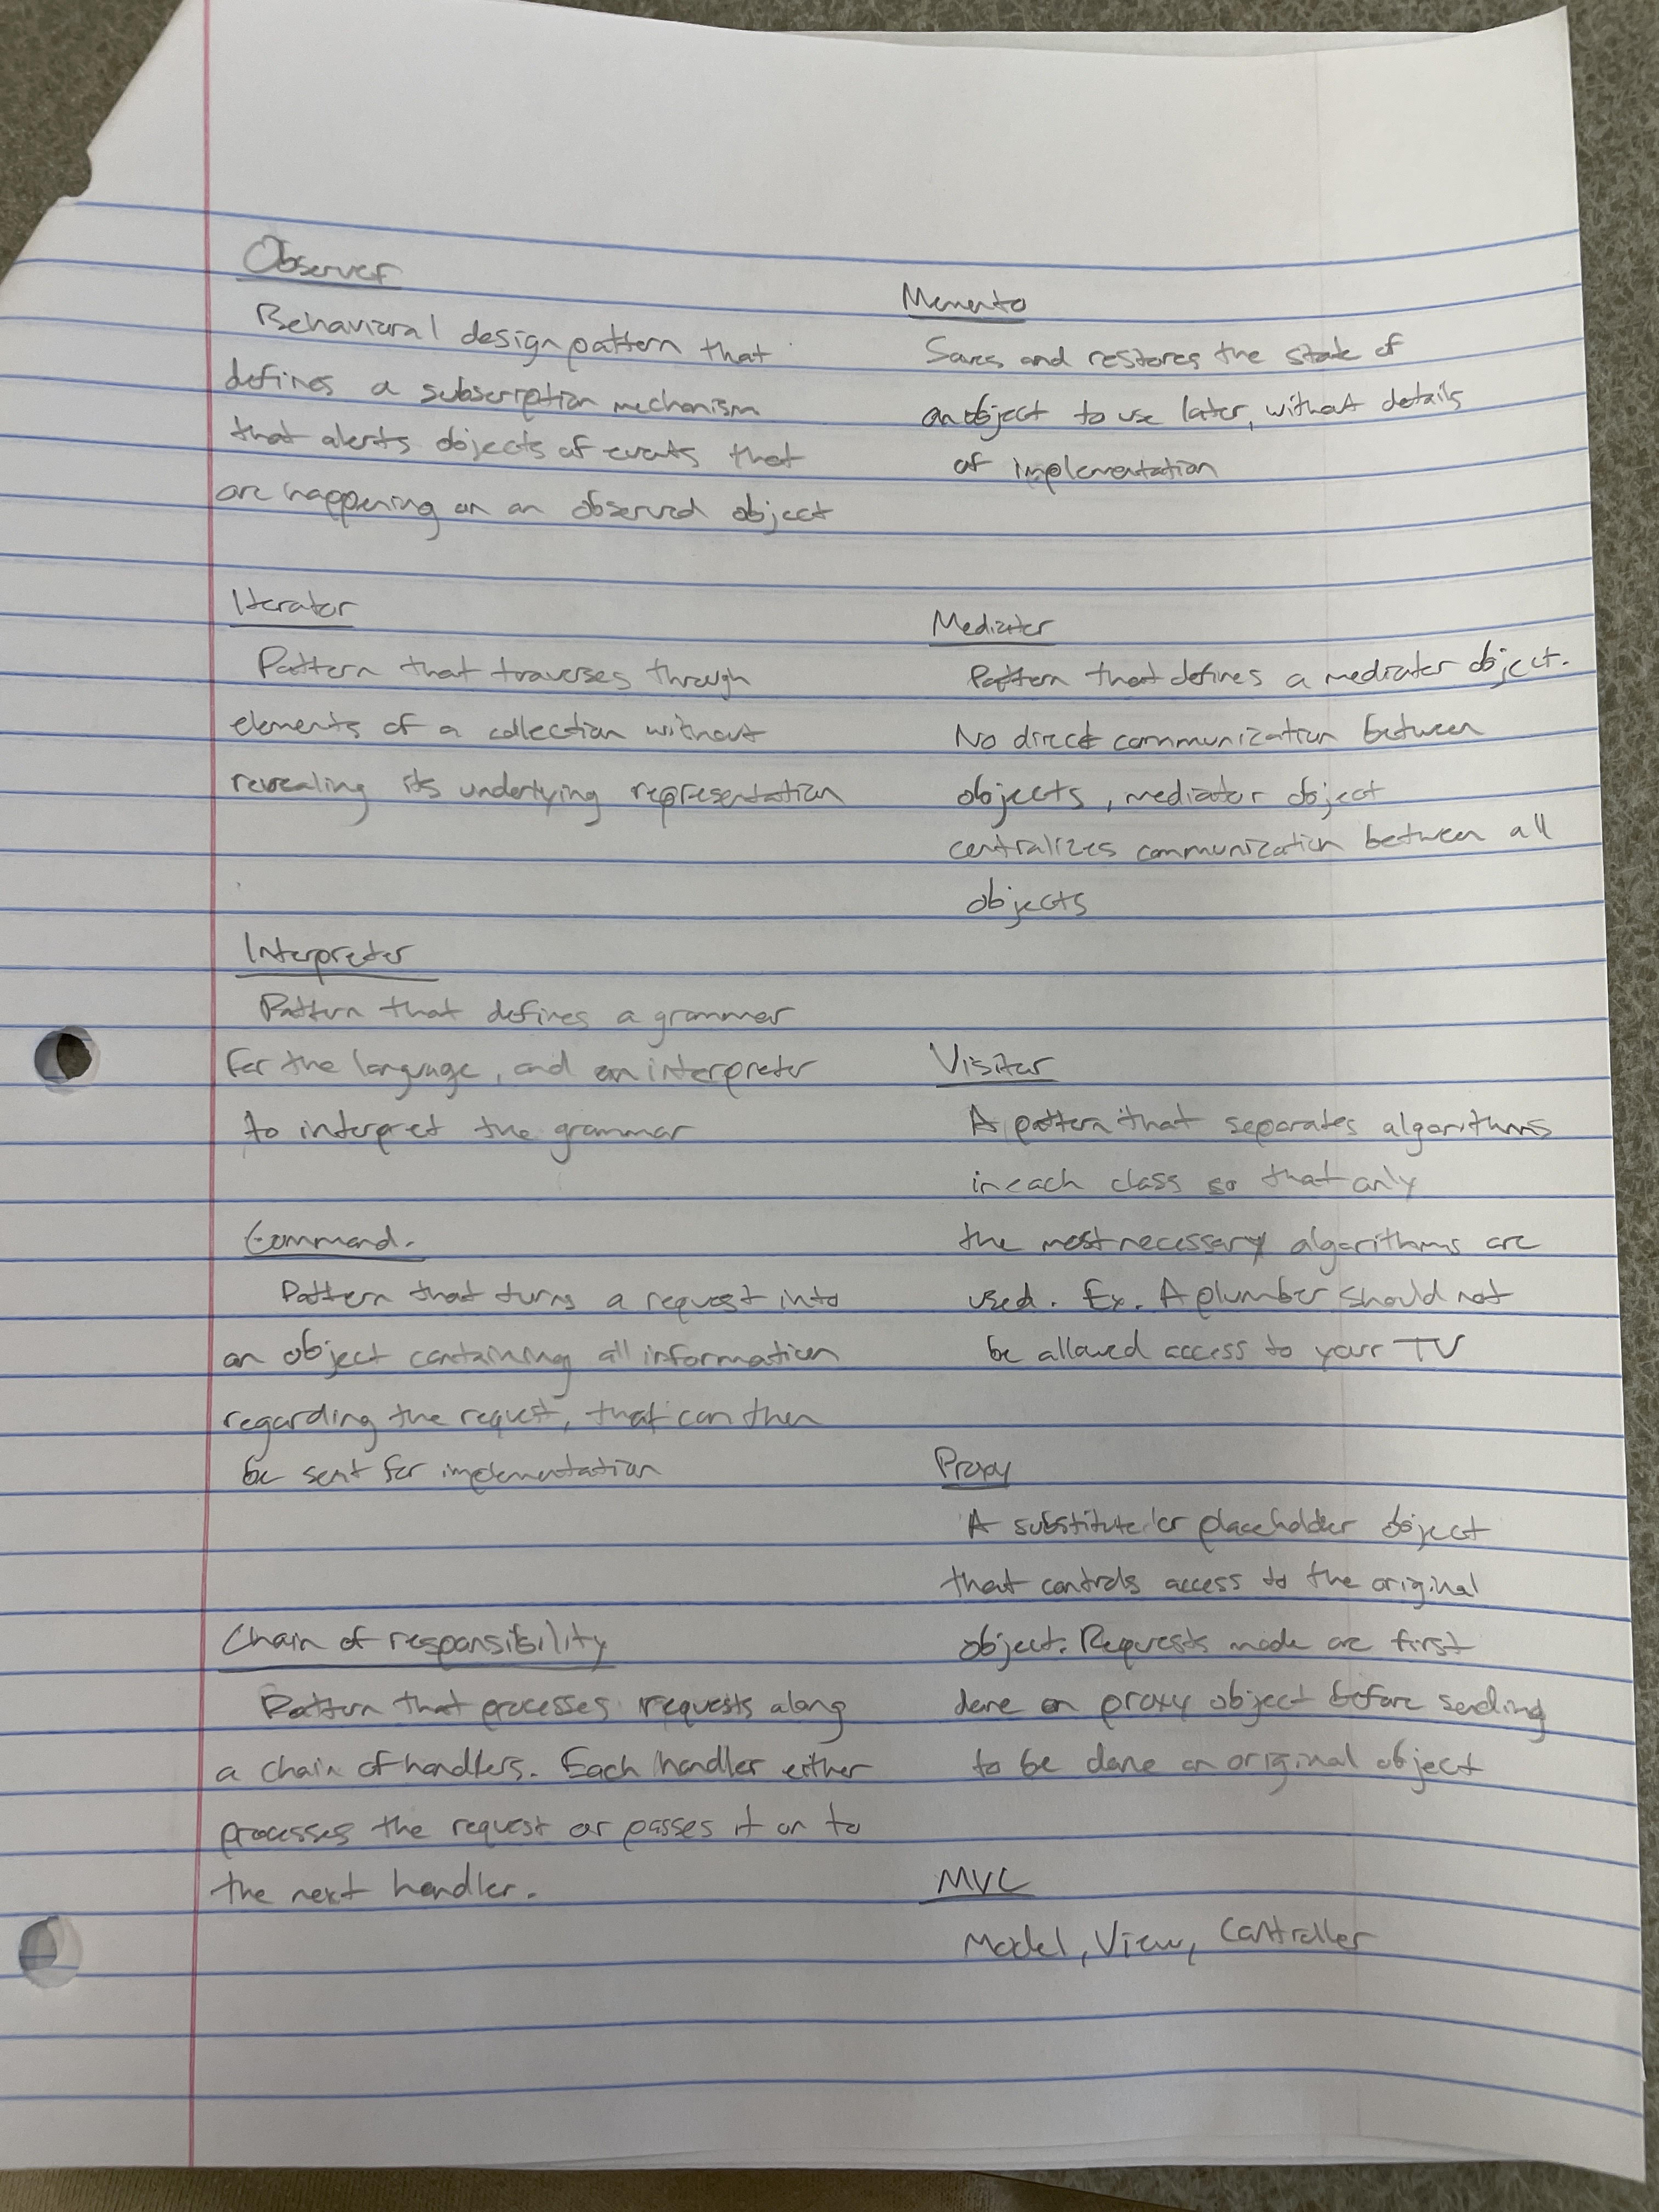 Observer
Behavioral design pattern that
defines a subscription mechanism
that alerts objects of events that
are happening on an observed object
Iterator
Pattern that traverses through
elements of a collection without
revealing its underlying representation
Interpreter
Pattern that defines a grammar
for the language, and an interpreter
to interpret the grammar
Command.
Pattern that turns a request into
an object containing all information
regarding the request, that can then
be sent for implementation
Chain of responsibility
Pattern that processes requests along
a chain of handlers. Each handler either
processes the request or passes it on to
the next handler.
Memento
Saves and restores the state of
an object to use later, without details
of implementation
Mediator
Pattern that defines a mediator object.
No direct communication between
objects, mediator object
centralizes communication between all
objects
Visitor
A pattern that separates algorithms
in each class so that only
the most necessary algorithms are
used. Ex. A plumber should not
be allowed access to your TV
Proxy
A substitute or placeholder object
that controls access to the original
object. Requests made are first
done on proxy object before sending
to be done on original object
MVC
Model, View, Controller